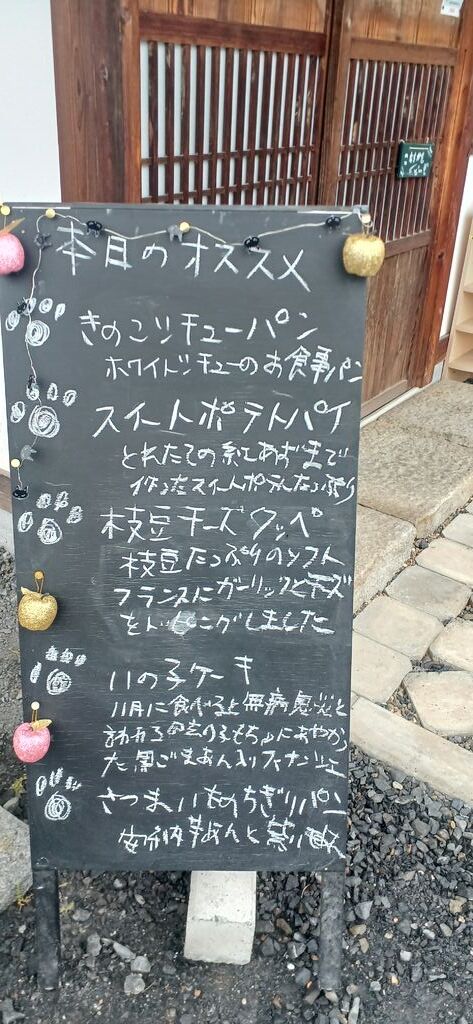 本日のオススメ
きのこシチューパン
ホワイトシチューのお食事パン
スイートポテトパイ
とれたての紅あずまで
作ったスイートポテトたっぷり
枝豆チーズクッペ
枝豆たっぷりのソフト
フランスにガーリックとチーズ
をトッピングしました
いの子ケーキ
11月に食べると無病息災と
言われる のこもちにあやかっ
た黒ごまあん入りフィナンシェ
さつまいものちぎりパン
芋あんと